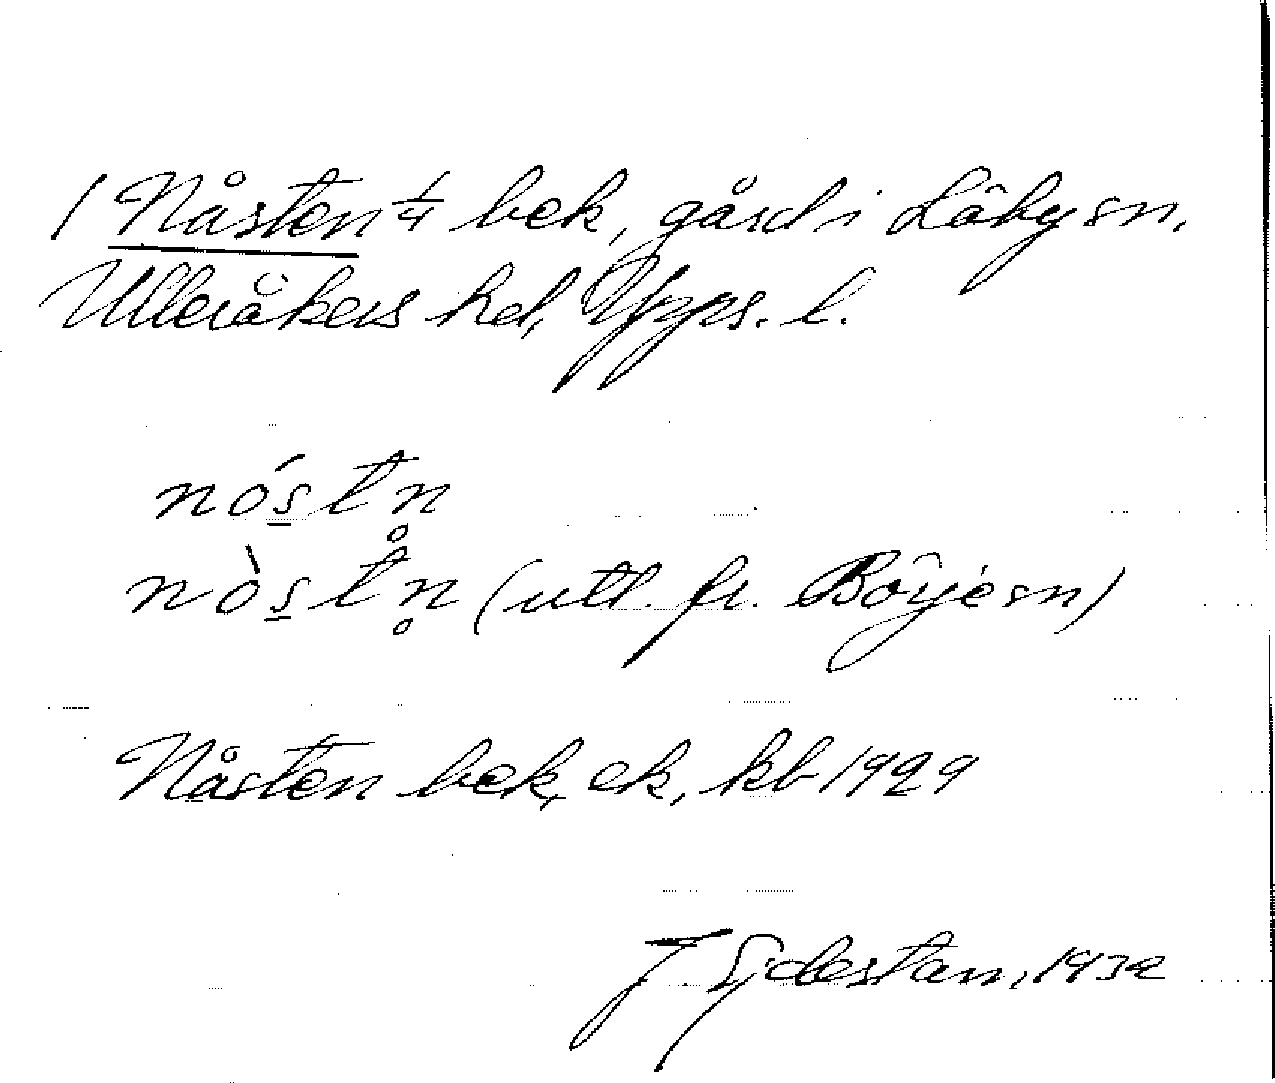 1 Nåsten 1/4 bek, gård i Läby sn,
Ulleråkers hd, Upps. l.
nó̱stn̥
nò̱stn̥ (utt. fr. Börje sn)
Nåsten bek, ek, kb 1929
J. Sjdestam, 1932